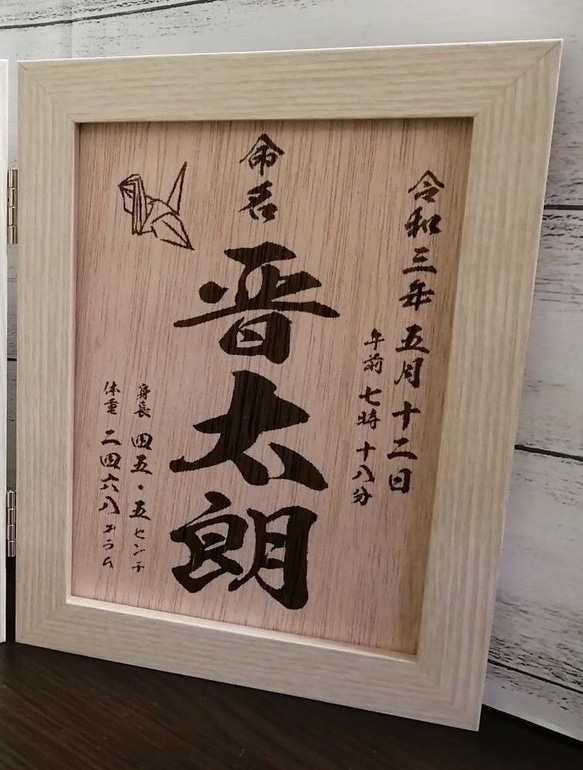 令和三年五月十二日
午前七時十八分
命名
晋太朗
身長四五・五センチ
体重二四六八グラム